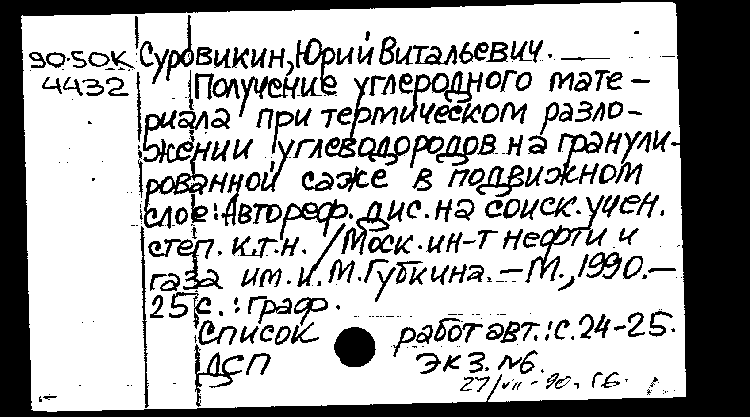 90-50К Суровикин, Юрий Витальевич.
4432 Получение углеродного мате-
риала при термическом разло-
жении углеводородов на гранули-
рованной саже в подвижном
слое: Автореф. дис. на соиск. учен.
степ. к.т.н. / Моск. ин-т нефти и
газа им. И. М. Губкина. — М., 1990. —
25 с.: граф.
Список работ авт.: с. 24-25.
ДСП Экз. №6.
27/VII-90. Г.Б.